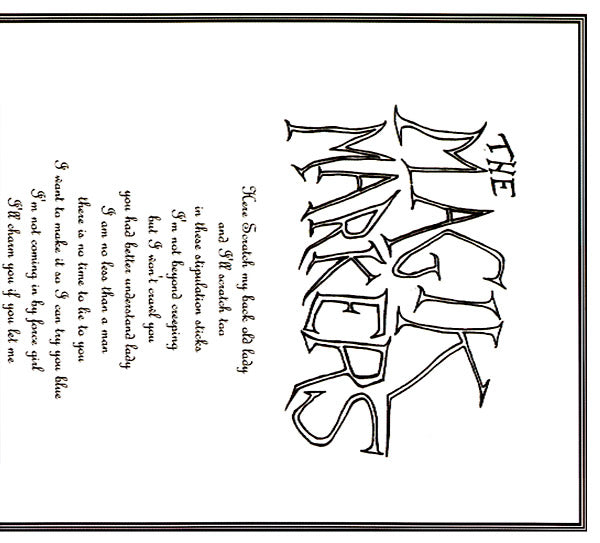 THE
MAGIK
MARKERS
Here Scratch my back old lady
and I'll scratch too
in these stipulation sticks
I'm not beyond creeping
but I won't crawl you
you had better understand lady
I am no less than a man
there is no time to lie to you
I want to make it so I can try you blue
I'm not coming in by force girl
I'll charm you if you let me